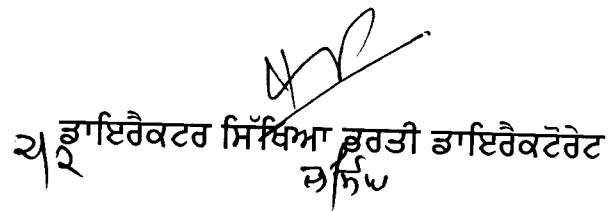 ਡਾਇਰੈਕਟਰ ਸਿੱਖਿਆ ਭਰਤੀ ਡਾਇਰੈਕਟੋਰੇਟ